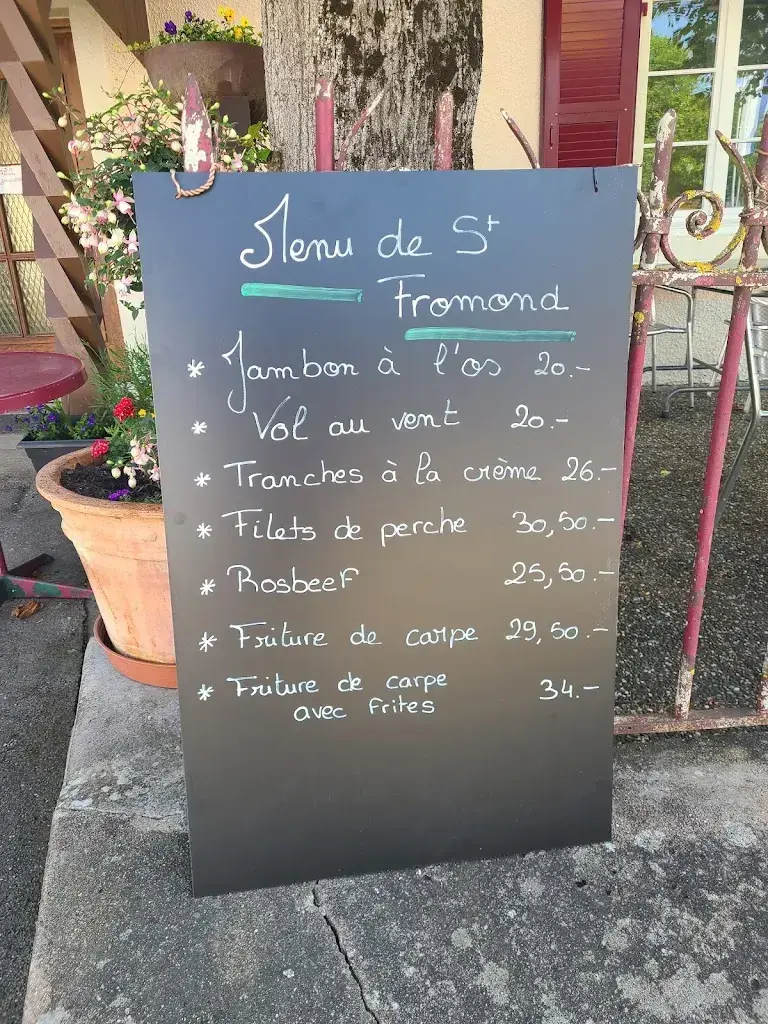 Menu de St
Fromond
* Jambon à l'os 20.-
* Vol au vent 20.-
* Tranches à la crème 26.-
* Filets de perche 30,50.-
* Rosbeef 25,50.-
* Friture de carpe 29,50.-
* Friture de carpe 34.-
avec frites